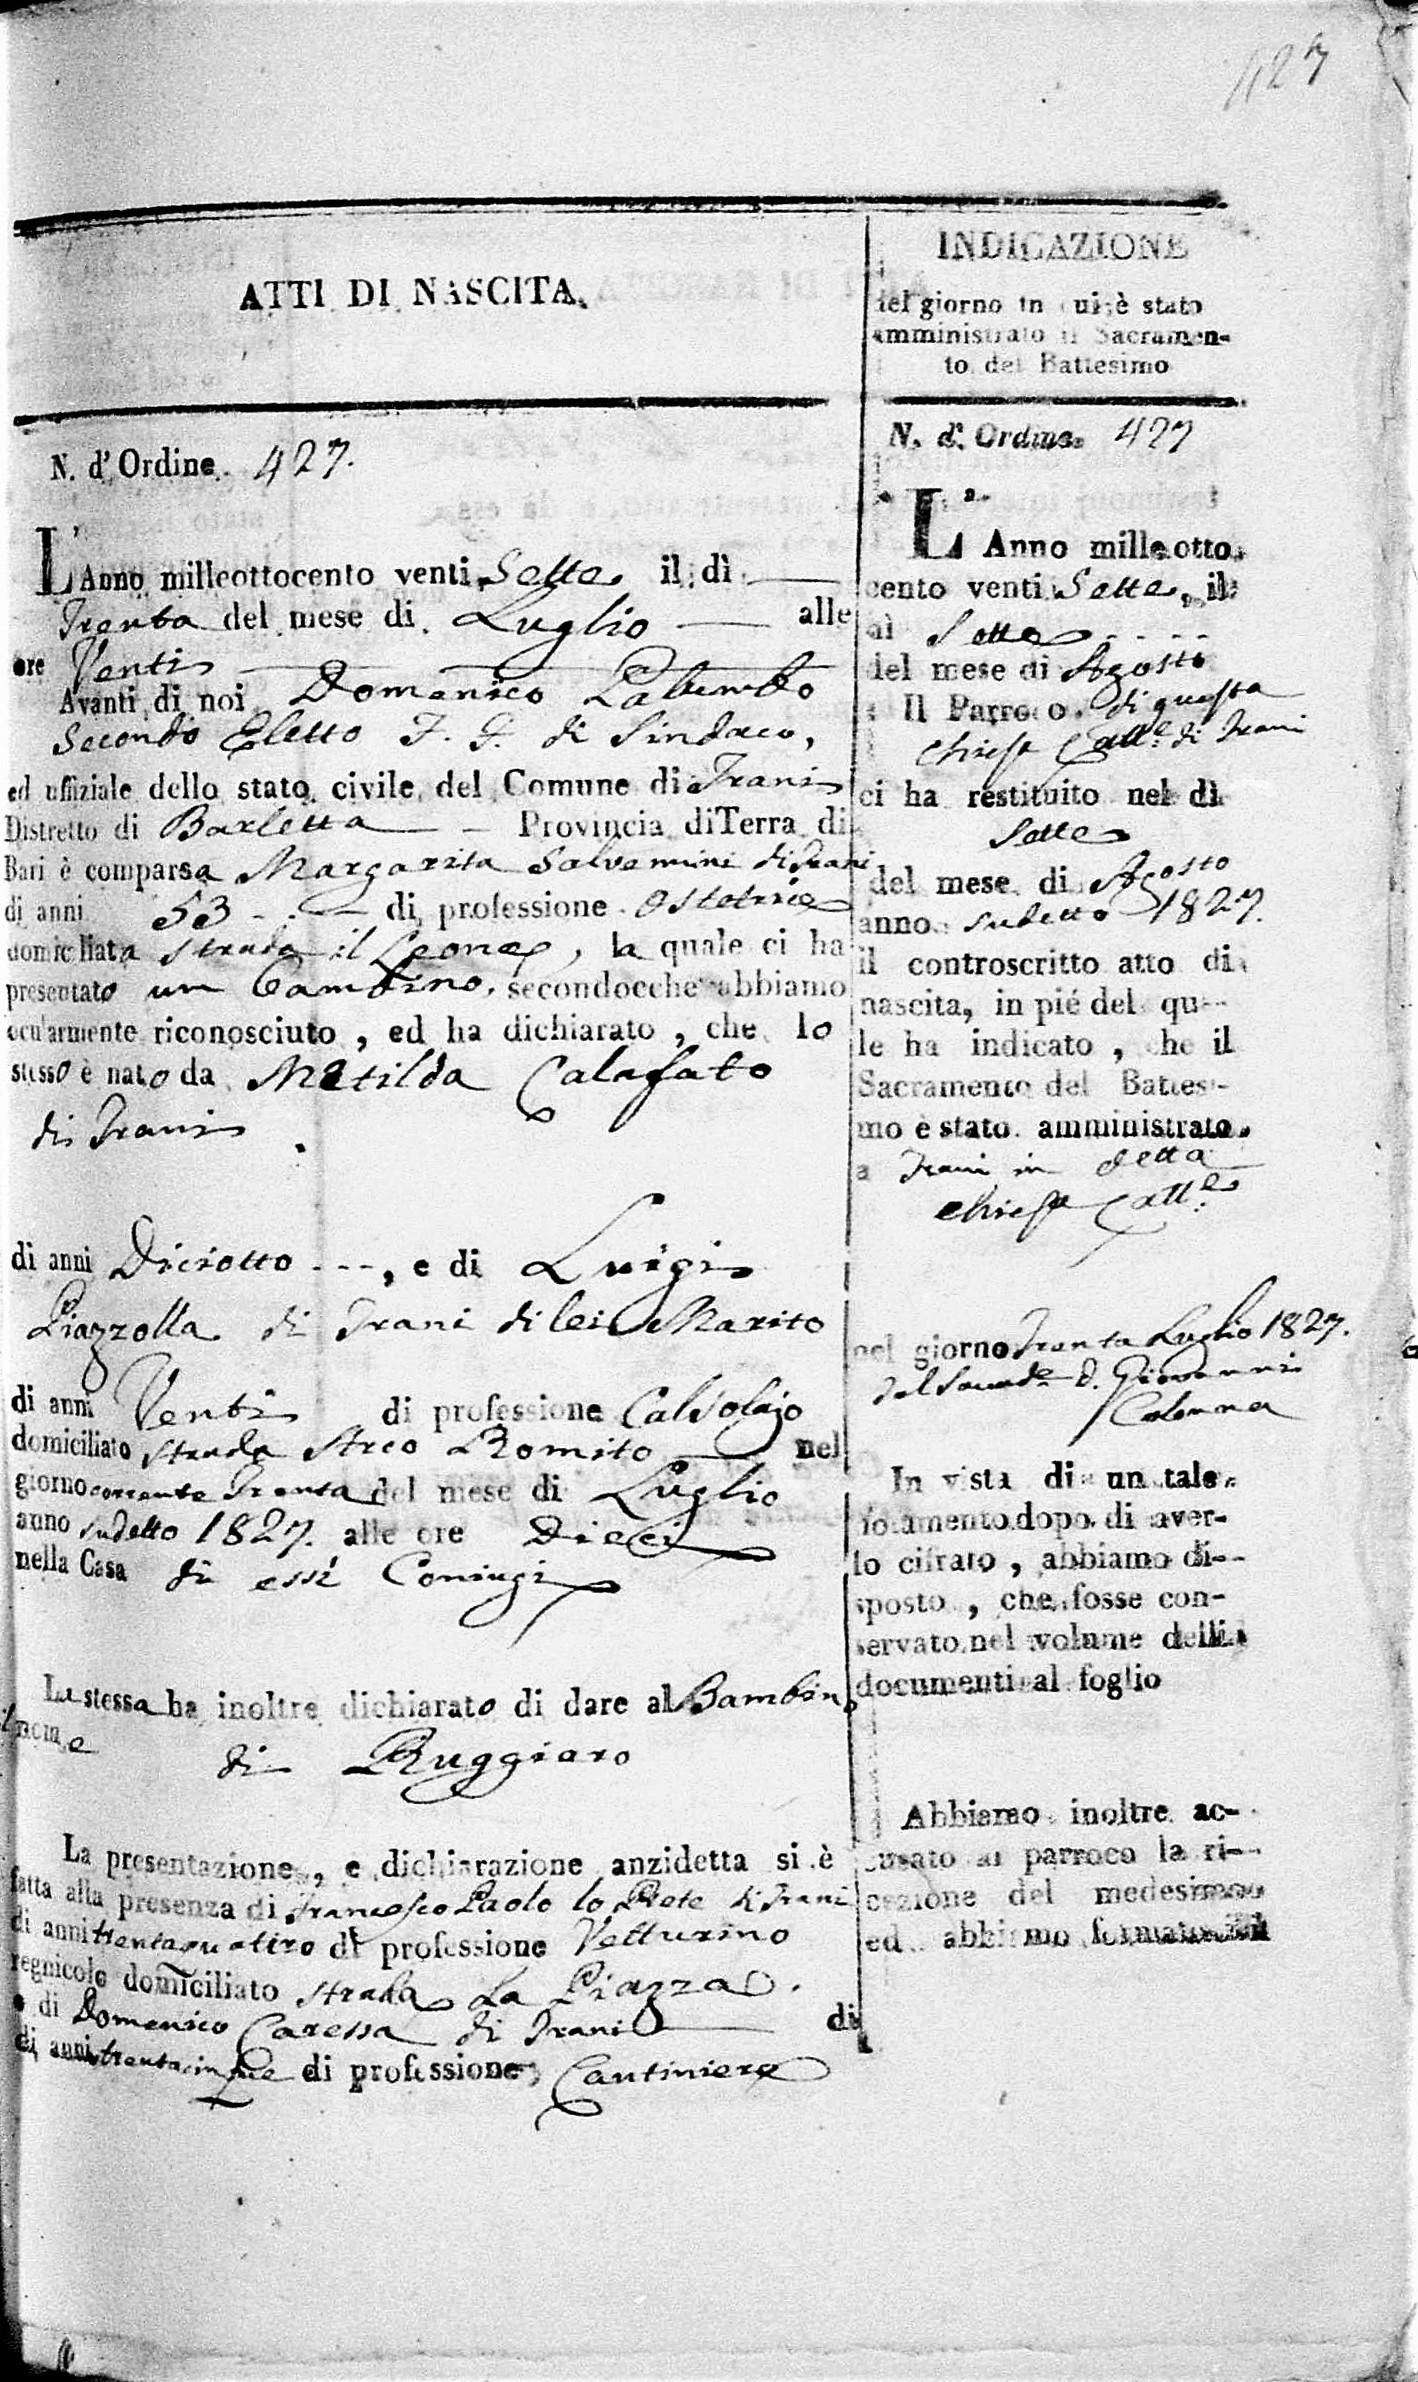 427
ATTI DI NASCITA.
N. d'Ordine 427.
L'Anno milleottocento venti Sette il dì
Trenta del mese di Luglio alle
ore Venti
Avanti di noi Domenico Palumbo
Secondo Eletto F. F. di Sindaco,
ed uffiziale dello stato civile del Comune di Trani
Distretto di Barletta Provincia di Terra di
Bari è comparsa Margarita Salvemini di Trani
di anni 53 di professione Ostetrice
domiciliata strada il Leone, la quale ci ha
presentato un Bambino, secondocche abbiamo
ocularmente riconosciuto, ed ha dichiarato, che lo
stesso è nato da Matilda Calafato
di Trani
di anni Diciotto - - -, e di Luigi
Piazzolla di Trani di lei Marito
di anni Venti di professione Calsolajo
domiciliato strada Arco Romito nel
giorno corrente Trenta del mese di Luglio
anno sudetto 1827. alle ore Dieci
nella Casa di essi Coniugi
La stessa ha inoltre dichiarato di dare al Bambino
il nome
di Ruggiero
La presentazione, e dichiarazione anzidetta si è
fatta alla presenza di Francesco Paolo lo Prete di Trani
di anni trentaquattro di professione Vetturino
regnicolo domiciliato strada La Piazza.
e di Domenico Caressa di Trani di
di anni trentacinque di professione Cantiniere
INDICAZIONE
del giorno in cui è stato
amministrato il Sacramen-
to del Battesimo
N. d'Ordine 427
L'Anno milleotto
cento venti Sette, il
dì Sette
del mese di Agosto
Il Parroco di questa
chiesa Catt.e di Trani
ci ha restituito nel dì
Sette
del mese di Agosto
anno sudetto 1827.
il controscritto atto di
nascita, in pié del qua-
le ha indicato, che il
Sacramento del Battesi-
mo è stato amministrato
a Trani in detta
chiesa Catt.e
nel giorno Trenta Luglio 1827.
dal D. Giovanni
Colonna
In vista di un tale
notamento dopo di aver-
lo cifrato, abbiamo di-
sposto, che fosse con-
servato nel volume delli
documenti al foglio
Abbiamo inoltre ac-
cusato al parroco la ri-
cezione del medesimo
ed abbiamo formato il